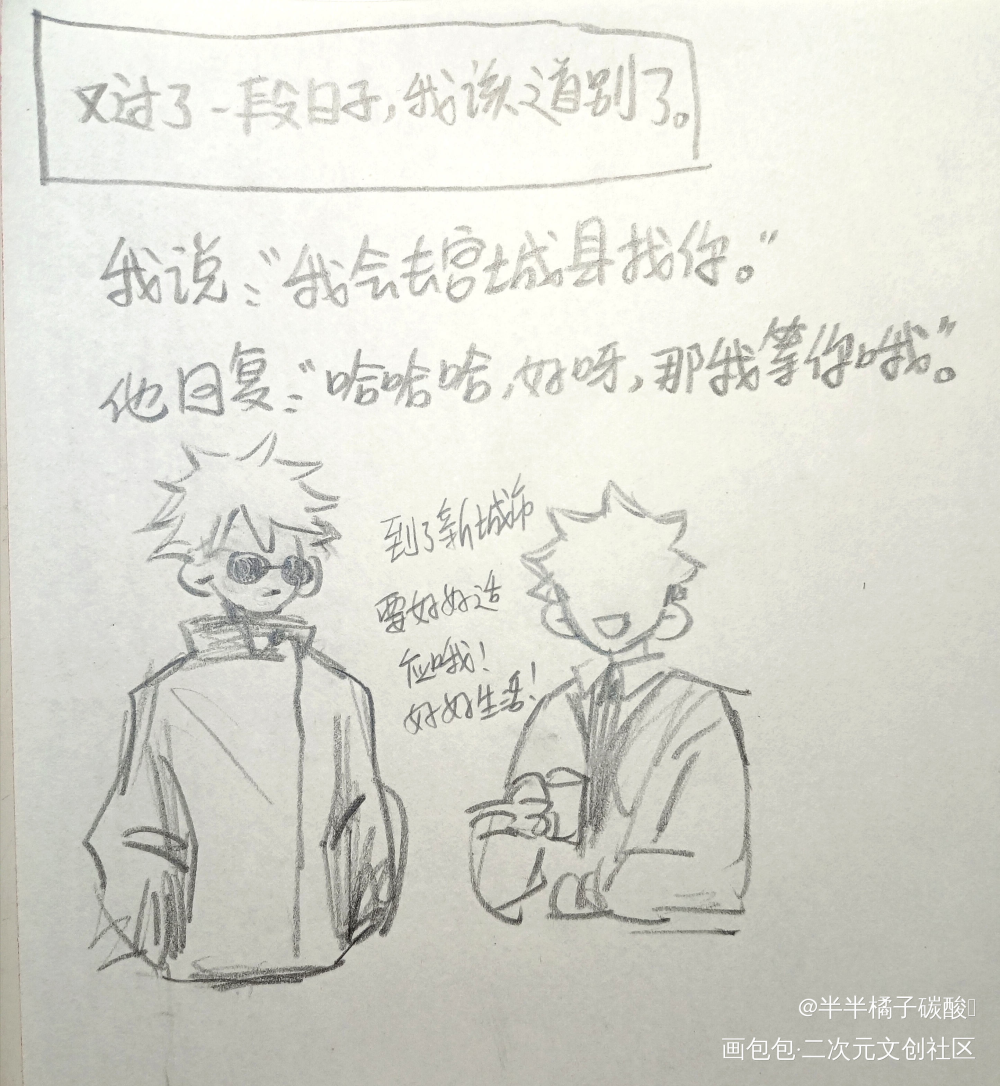 又过了一段日子,我该道别了。
我说:“我会去宫城县找你。”
他回复:“哈哈哈,好呀,那我等你哦”。
到了新城市
要好好适
应哦!
好好生活!
@半半橘子碳酸
画包包·二次元文创社区